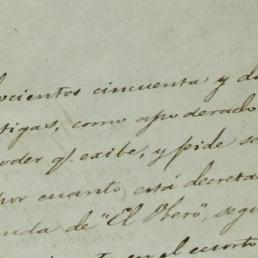 ocientos cincuenta y d
tigas, como apoderado
oder q.e exibe, y pide se
por cuanto está decreta
nda de "El Ybero", segu
en el cuarto